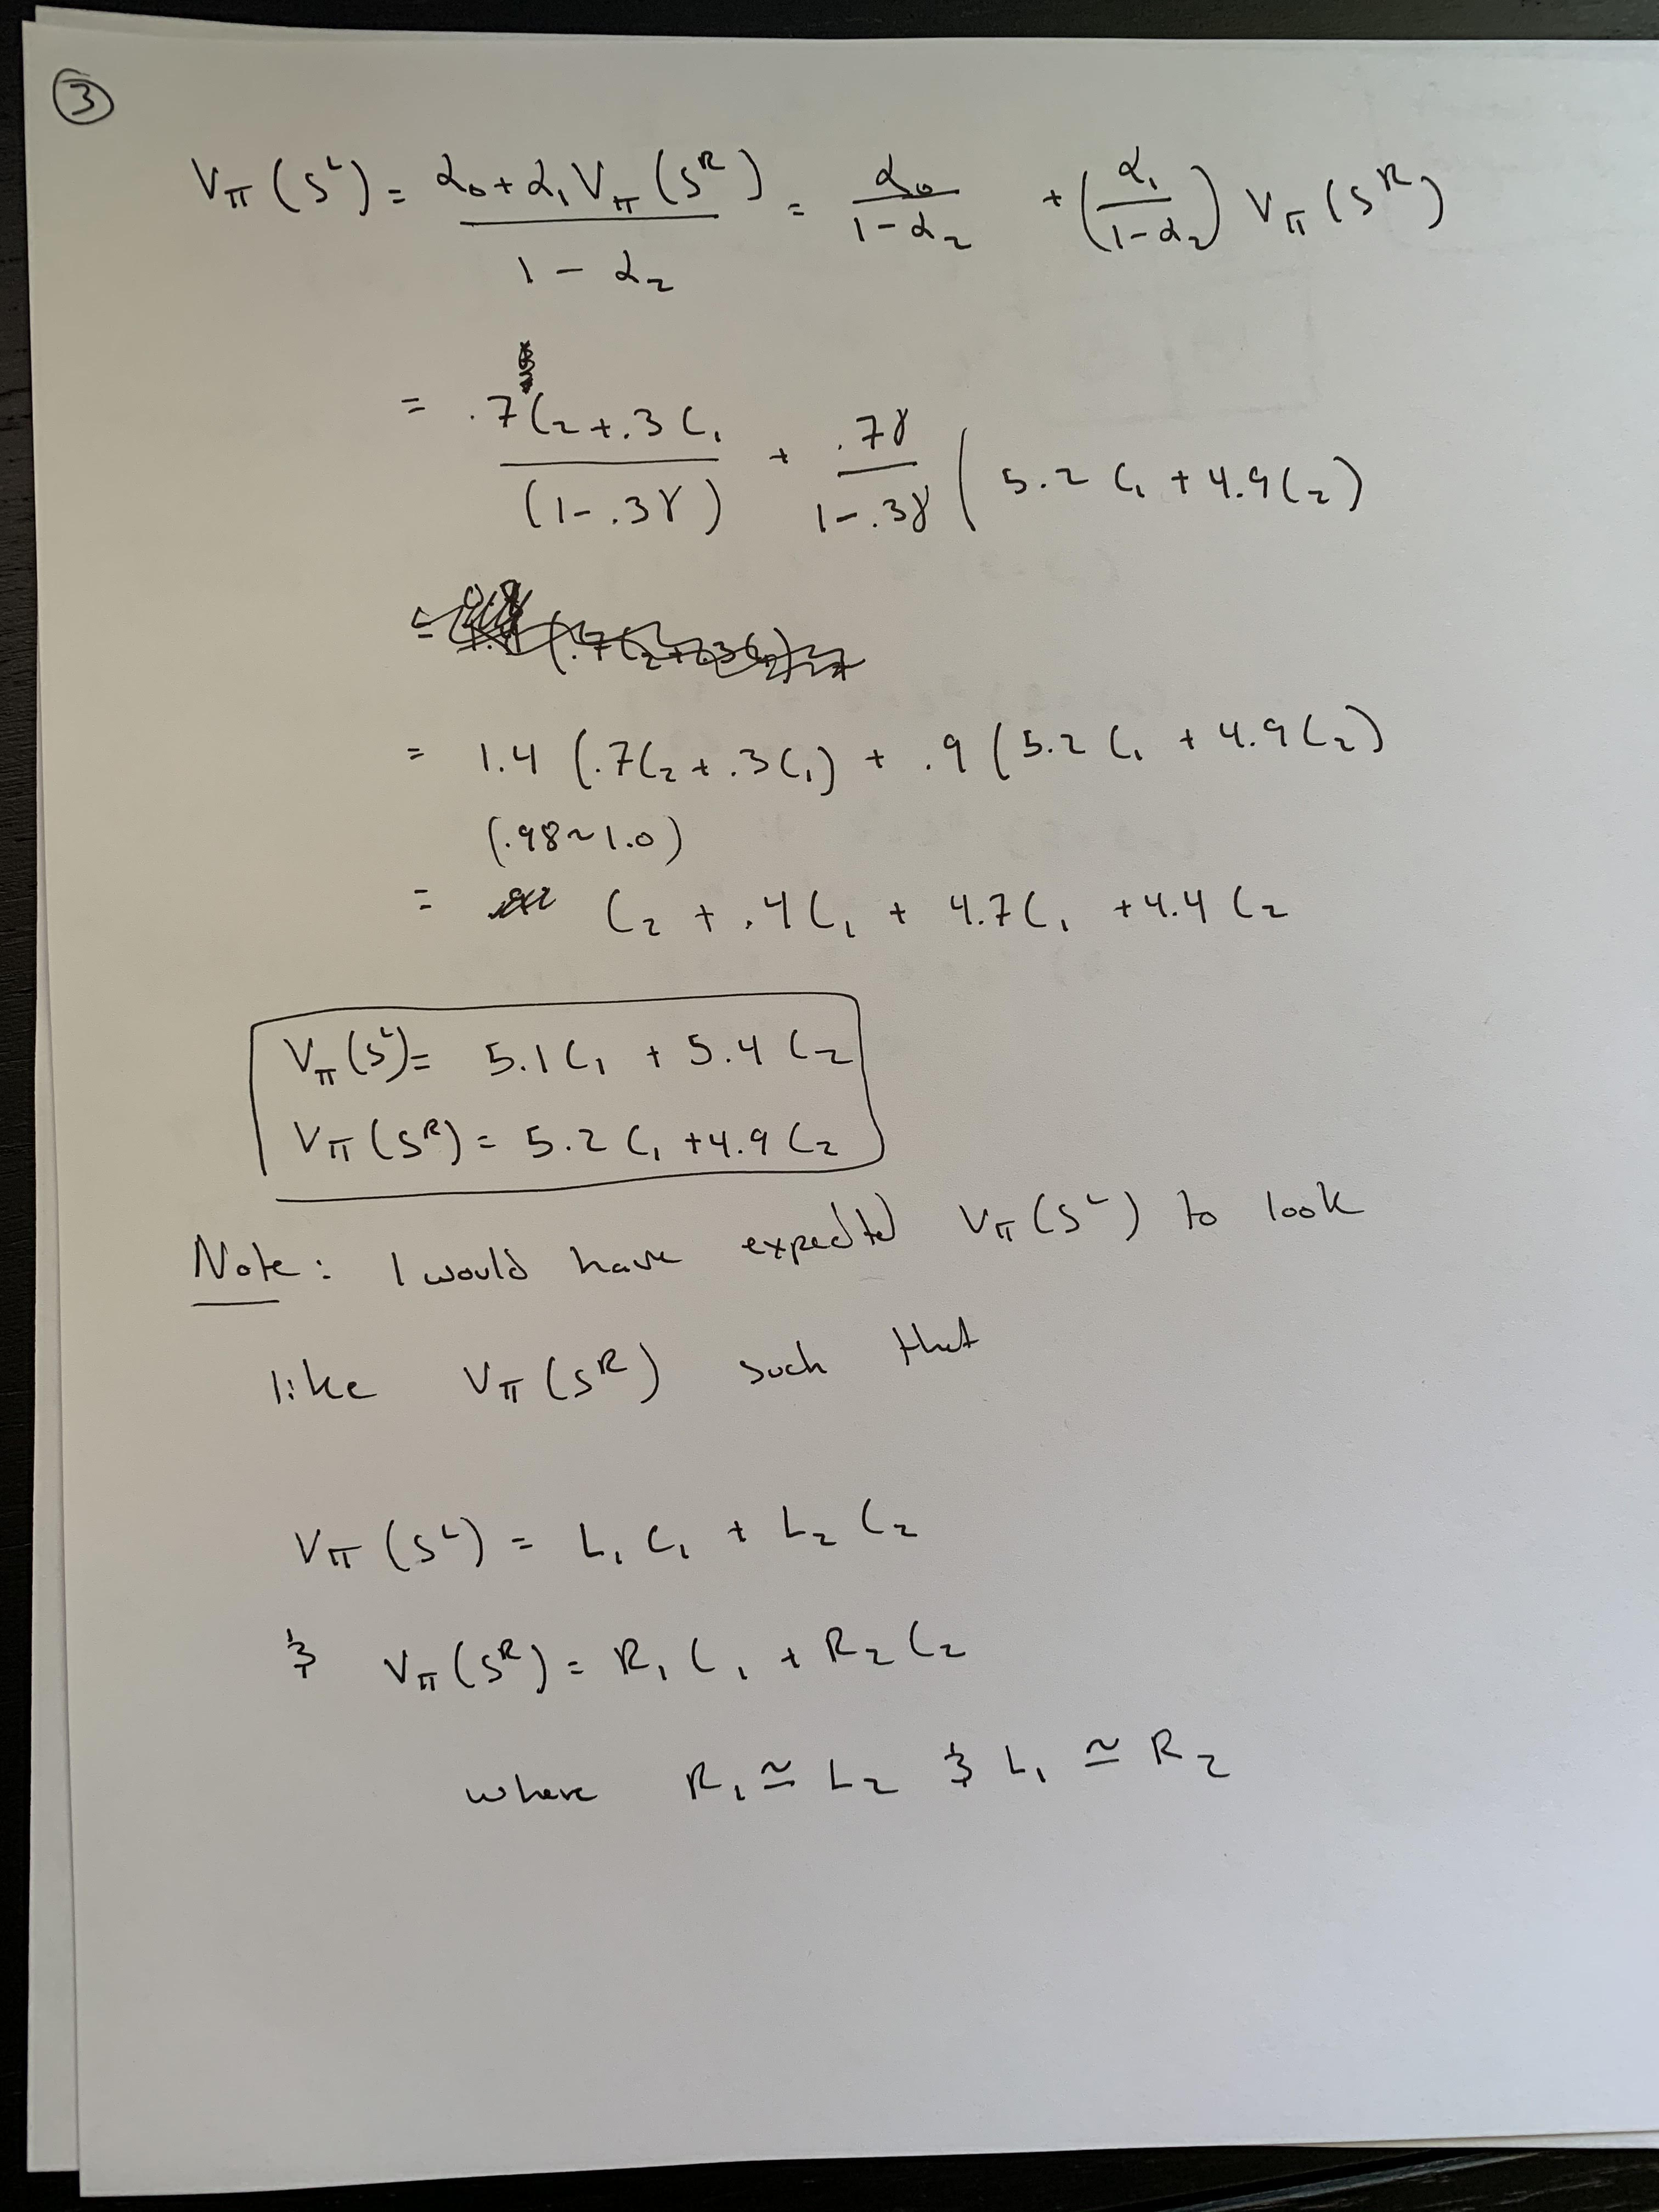 ③
Vπ(Sᴸ) = (α₀ + α₁ Vπ(Sᴿ)) / (1 - α₂) = α₀ / (1 - α₂) + (α₁ / (1 - α₂)) Vπ(Sᴿ)
= (.7C₂ + .3C₁) / (1 - .3γ) + .7γ / (1 - .3γ) (5.2C₁ + 4.9C₂)
= 1.4 (.7C₂ + .3C₁) + .9 (5.2C₁ + 4.9C₂)
(.98 ~ 1.0)
= C₂ + .4C₁ + 4.7C₁ + 4.4C₂
Vπ(Sᴸ) = 5.1C₁ + 5.4C₂
Vπ(Sᴿ) = 5.2C₁ + 4.9C₂
Note: I would have expected Vπ(Sᴸ) to look
like Vπ(Sᴿ) such that
Vπ(Sᴸ) = L₁C₁ + L₂C₂
& Vπ(Sᴿ) = R₁C₁ + R₂C₂
where R₁ ≃ L₂ & L₁ ≃ R₂